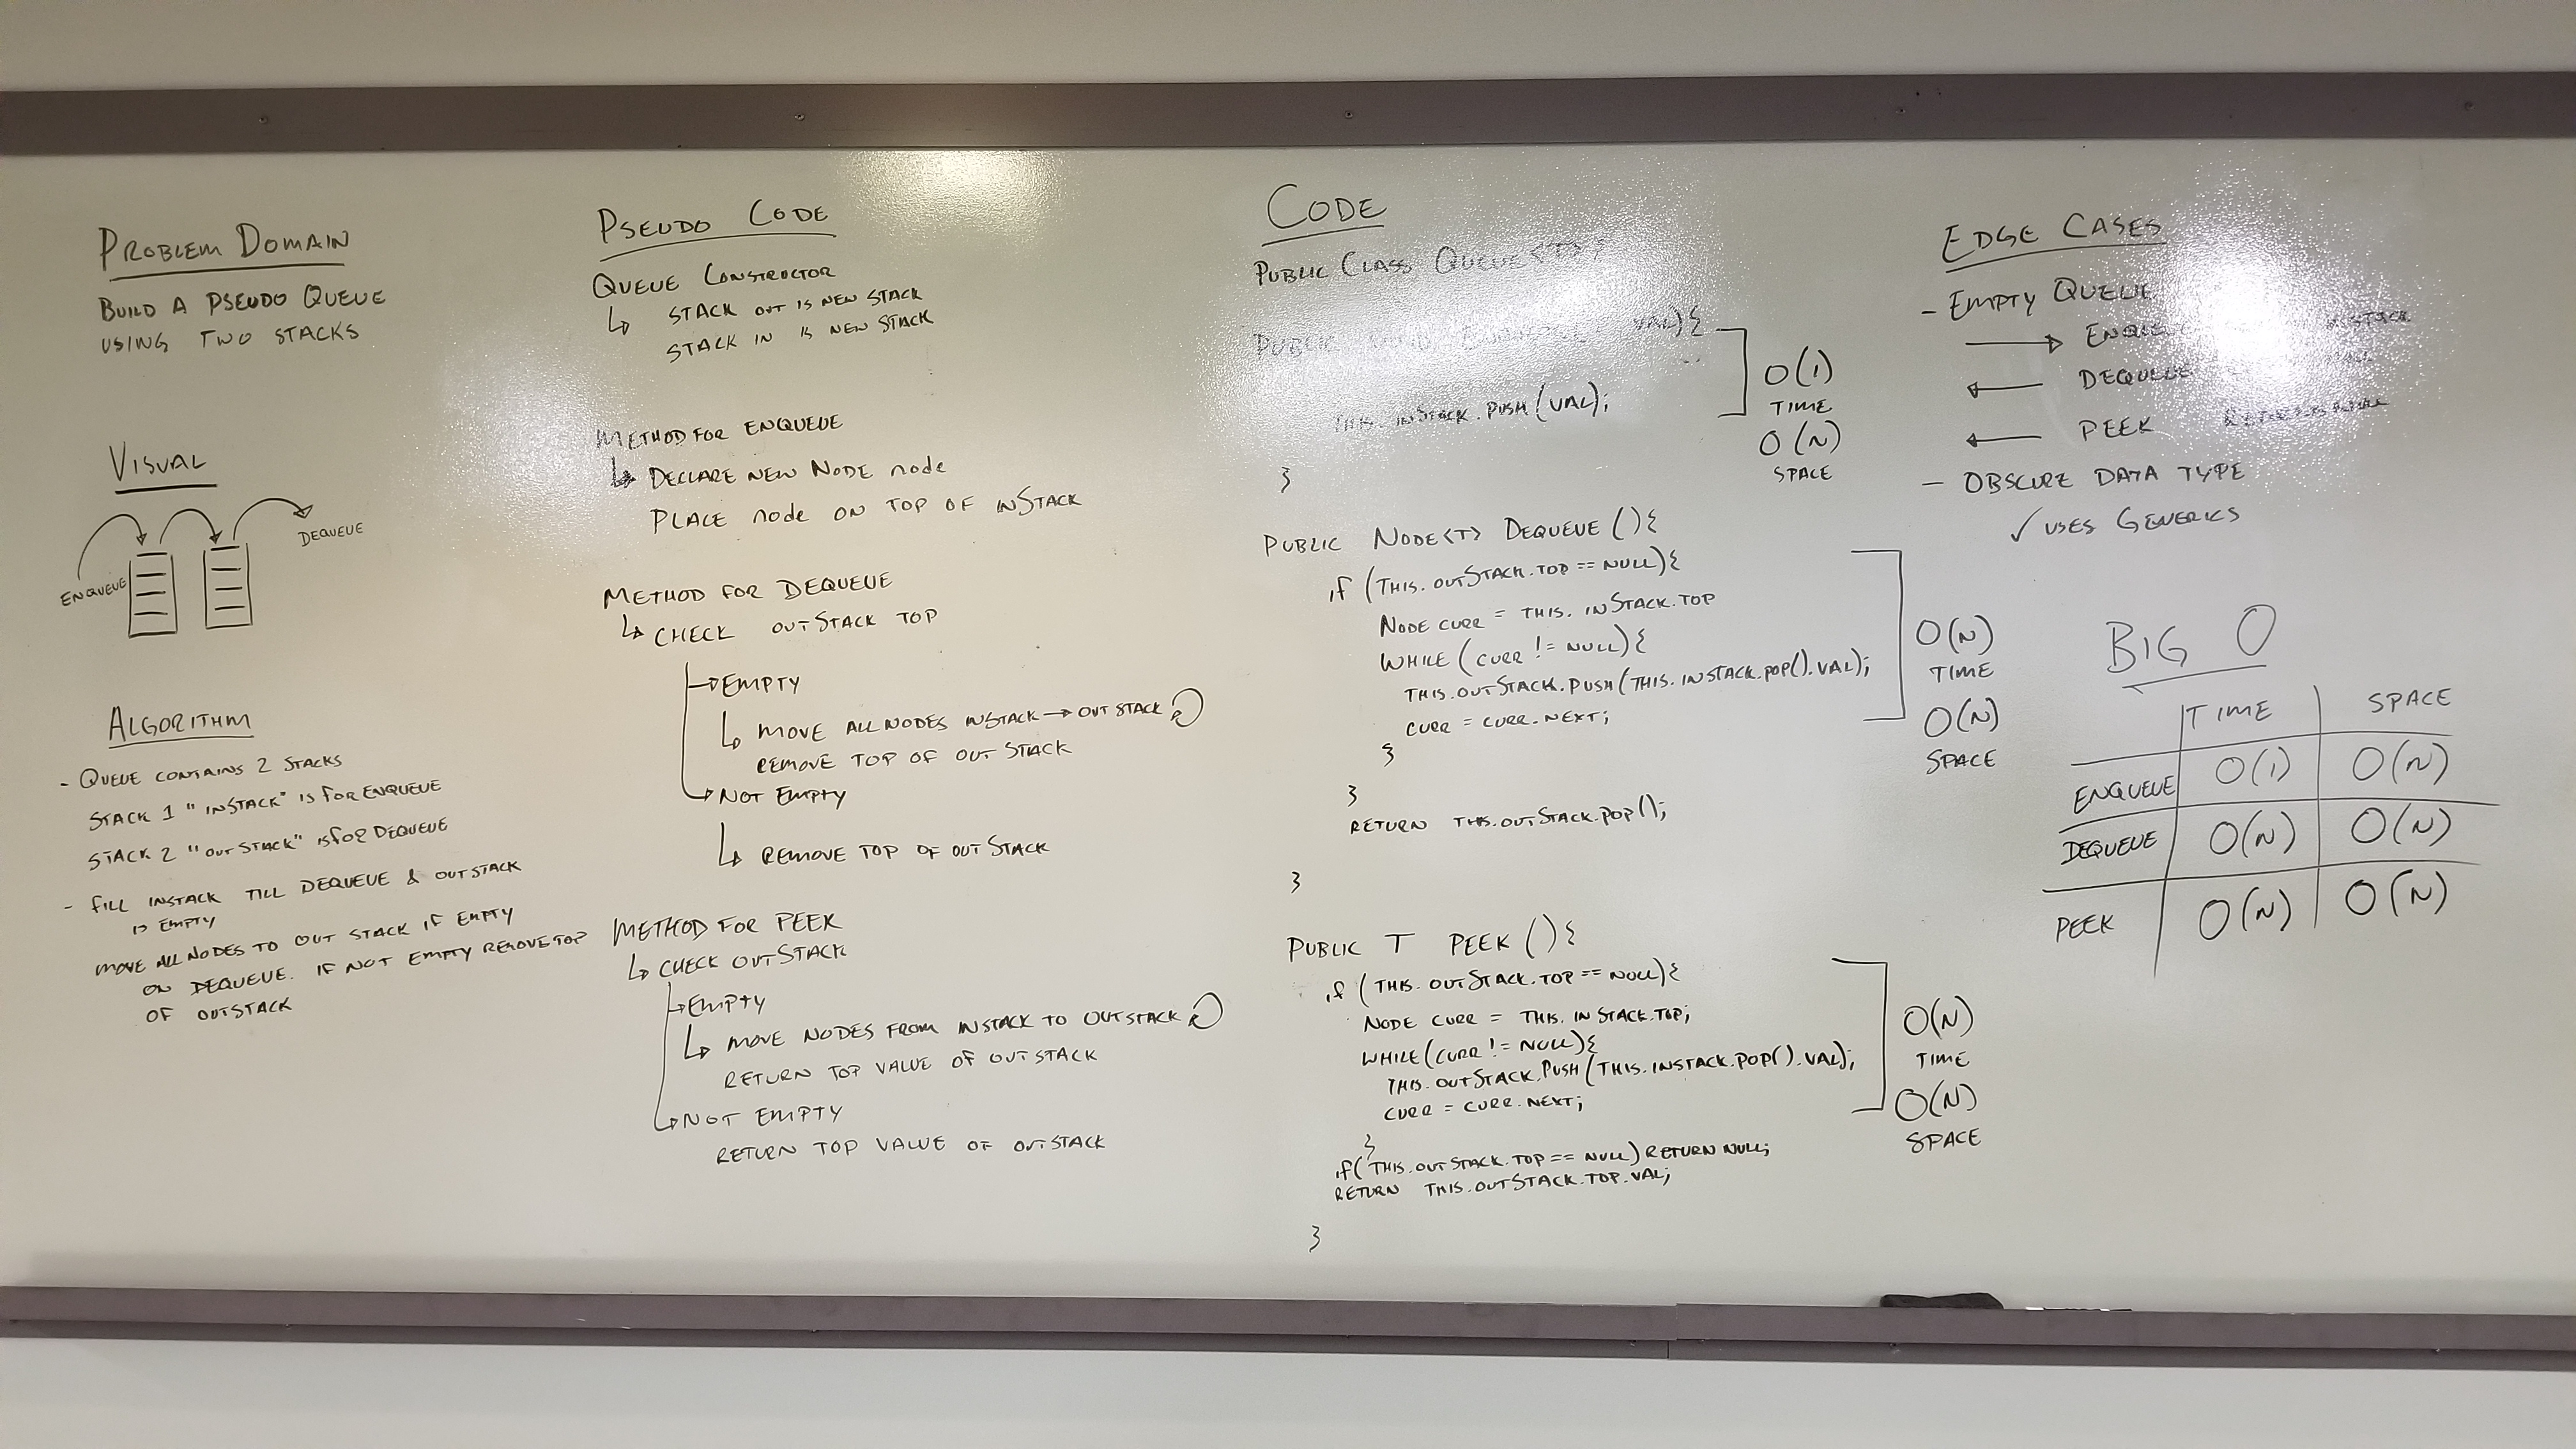 PROBLEM DOMAIN
BUILD A PSEUDO QUEUE
USING TWO STACKS
VISUAL
ENQUEUE
DEQUEUE
ALGORITHM
- QUEUE CONTAINS 2 STACKS
STACK 1 "INSTACK" IS FOR ENQUEUE
STACK 2 "OUTSTACK" IS FOR DEQUEUE
- FILL INSTACK TILL DEQUEUE & OUTSTACK
IS EMPTY
MOVE ALL NODES TO OUT STACK IF EMPTY
ON DEQUEUE. IF NOT EMPTY REMOVE TOP
OF OUTSTACK
PSEUDO CODE
QUEUE CONSTRUCTOR
↳ STACK OUT IS NEW STACK
STACK IN IS NEW STACK
METHOD FOR ENQUEUE
↳ DECLARE NEW NODE node
PLACE node ON TOP OF INSTACK
METHOD FOR DEQUEUE
↳ CHECK OUTSTACK TOP
→ EMPTY
↳ MOVE ALL NODES INSTACK → OUTSTACK
REMOVE TOP OF OUTSTACK
→ NOT EMPTY
↳ REMOVE TOP OF OUTSTACK
METHOD FOR PEEK
↳ CHECK OUTSTACK
→ EMPTY
↳ MOVE NODES FROM INSTACK TO OUTSTACK
RETURN TOP VALUE OF OUTSTACK
→ NOT EMPTY
RETURN TOP VALUE OF OUTSTACK
CODE
PUBLIC CLASS QUEUE<T>{
PUBLIC VAL){
THIS.INSTACK.PUSH(VAL);
}
O(1)
TIME
O(N)
SPACE
PUBLIC NODE<T> DEQUEUE(){
if (THIS.OUTSTACK.TOP == NULL){
NODE CURR = THIS.INSTACK.TOP
WHILE (CURR != NULL){
THIS.OUTSTACK.PUSH(THIS.INSTACK.POP().VAL);
CURR = CURR.NEXT;
}
}
RETURN THIS.OUTSTACK.POP();
}
O(N)
TIME
O(N)
SPACE
PUBLIC T PEEK(){
if (THIS.OUTSTACK.TOP == NULL){
NODE CURR = THIS.INSTACK.TOP;
WHILE(CURR != NULL){
THIS.OUTSTACK.PUSH(THIS.INSTACK.POP().VAL);
CURR = CURR.NEXT;
}
if(THIS.OUTSTACK.TOP == NULL) RETURN NULL;
RETURN THIS.OUTSTACK.TOP.VAL;
}
O(N)
TIME
O(N)
SPACE
EDGE CASES
- EMPTY QUEUE
→ ENQUEUE
← DEQUEUE
← PEEK
- OBSCURE DATA TYPE
✓ USES GENERICS
BIG O
TIME SPACE
ENQUEUE O(1) O(N)
DEQUEUE O(N) O(N)
PEEK O(N) O(N)